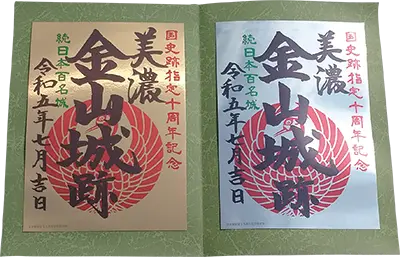 国史跡指定十周年記念
美濃
金山城跡
続日本百名城
令和五年七月吉日
国史跡指定十周年記念
美濃
金山城跡
続日本百名城
令和五年七月吉日